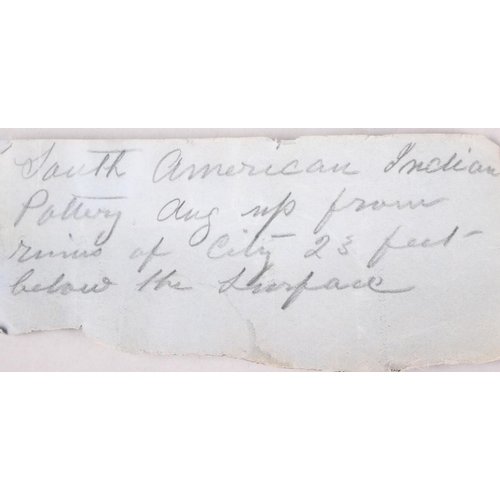 South American Indian
Pottery dug up from
ruins of City 23 feet
below the surface